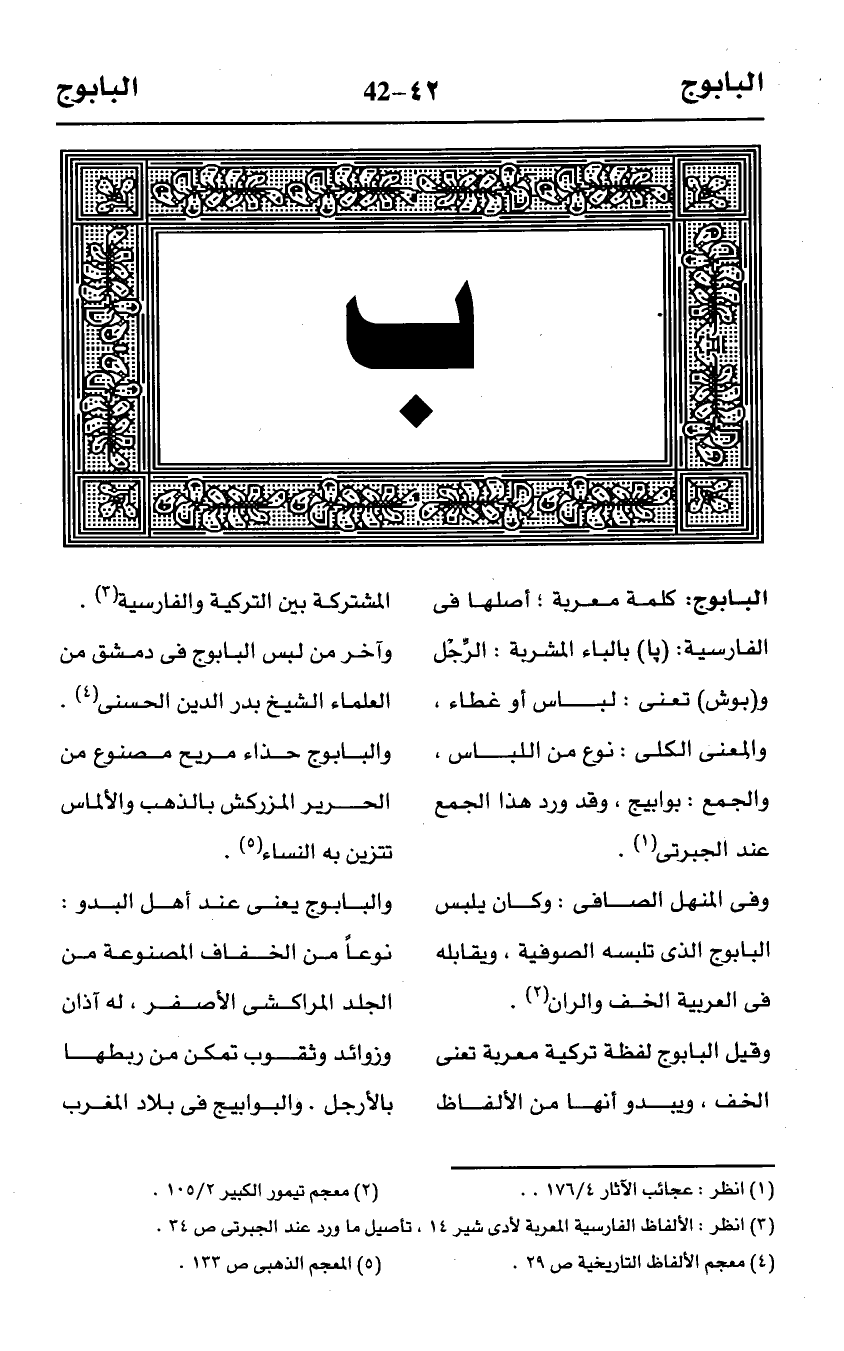 البابوج
٤٢-42
البابوج
ب
البـابوج: كلمـة مـعـربة ؛ أصلهـا فى
الفارسيـة: (پا) بالباء المشربة : الرِّجْل
و(بوش) تعنى : لبــاس أو غطاء ،
والمعنى الكلى : نوع من اللبــاس ،
والجمع : بوابيج ، وقد ورد هذا الجمع
عند الجبرتى(١) .
وفى المنهل الصــافى : وكــان يلبس
البابوج الذى تلبسه الصوفية ، ويقابله
فى العربية الخـف والران(٢) .
وقيل البابوج لفظة تركية معربة تعنى
الخف ، ويبــدو أنهــا من الألفــاظ
المشتركـة بين التركيـة والفارسية(٣) .
وآخـر من لبس البـابوج فى دمـشق من
العلماء الشيـخ بدر الدين الحسنى(٤) .
والبــابوج حــذاء مــريح مــصنوع من
الحـــرير المـزركش بـالذهـب والألماس
تتزين به النساء(٥) .
والبــابـوج يعنـى عنـد أهــل البـدو :
نوعـاً مـن الخــفـاف المصنوعـة مـن
الجلد المراكــشى الأصــفــر ، له آذان
وزوائـد وثقــوب تمكـن مـن ربطهــا
بالأرجـل . والبـوابيج فى بـلاد المغـرب
(١) انظر : عجائب الآثار ١٧٦/٤ . .
(٢) معجم تيمور الكبير ١٠٥/٢ .
(٣) انظر : الألفاظ الفارسية المعربة لأدى شير ١٤ ، تأصيل ما ورد عند الجبرتى ص ٣٤ .
(٤) معجم الألفاظ التاريخية ص ٢٩ .
(٥) المعجم الذهبى ص ١٣٣ .